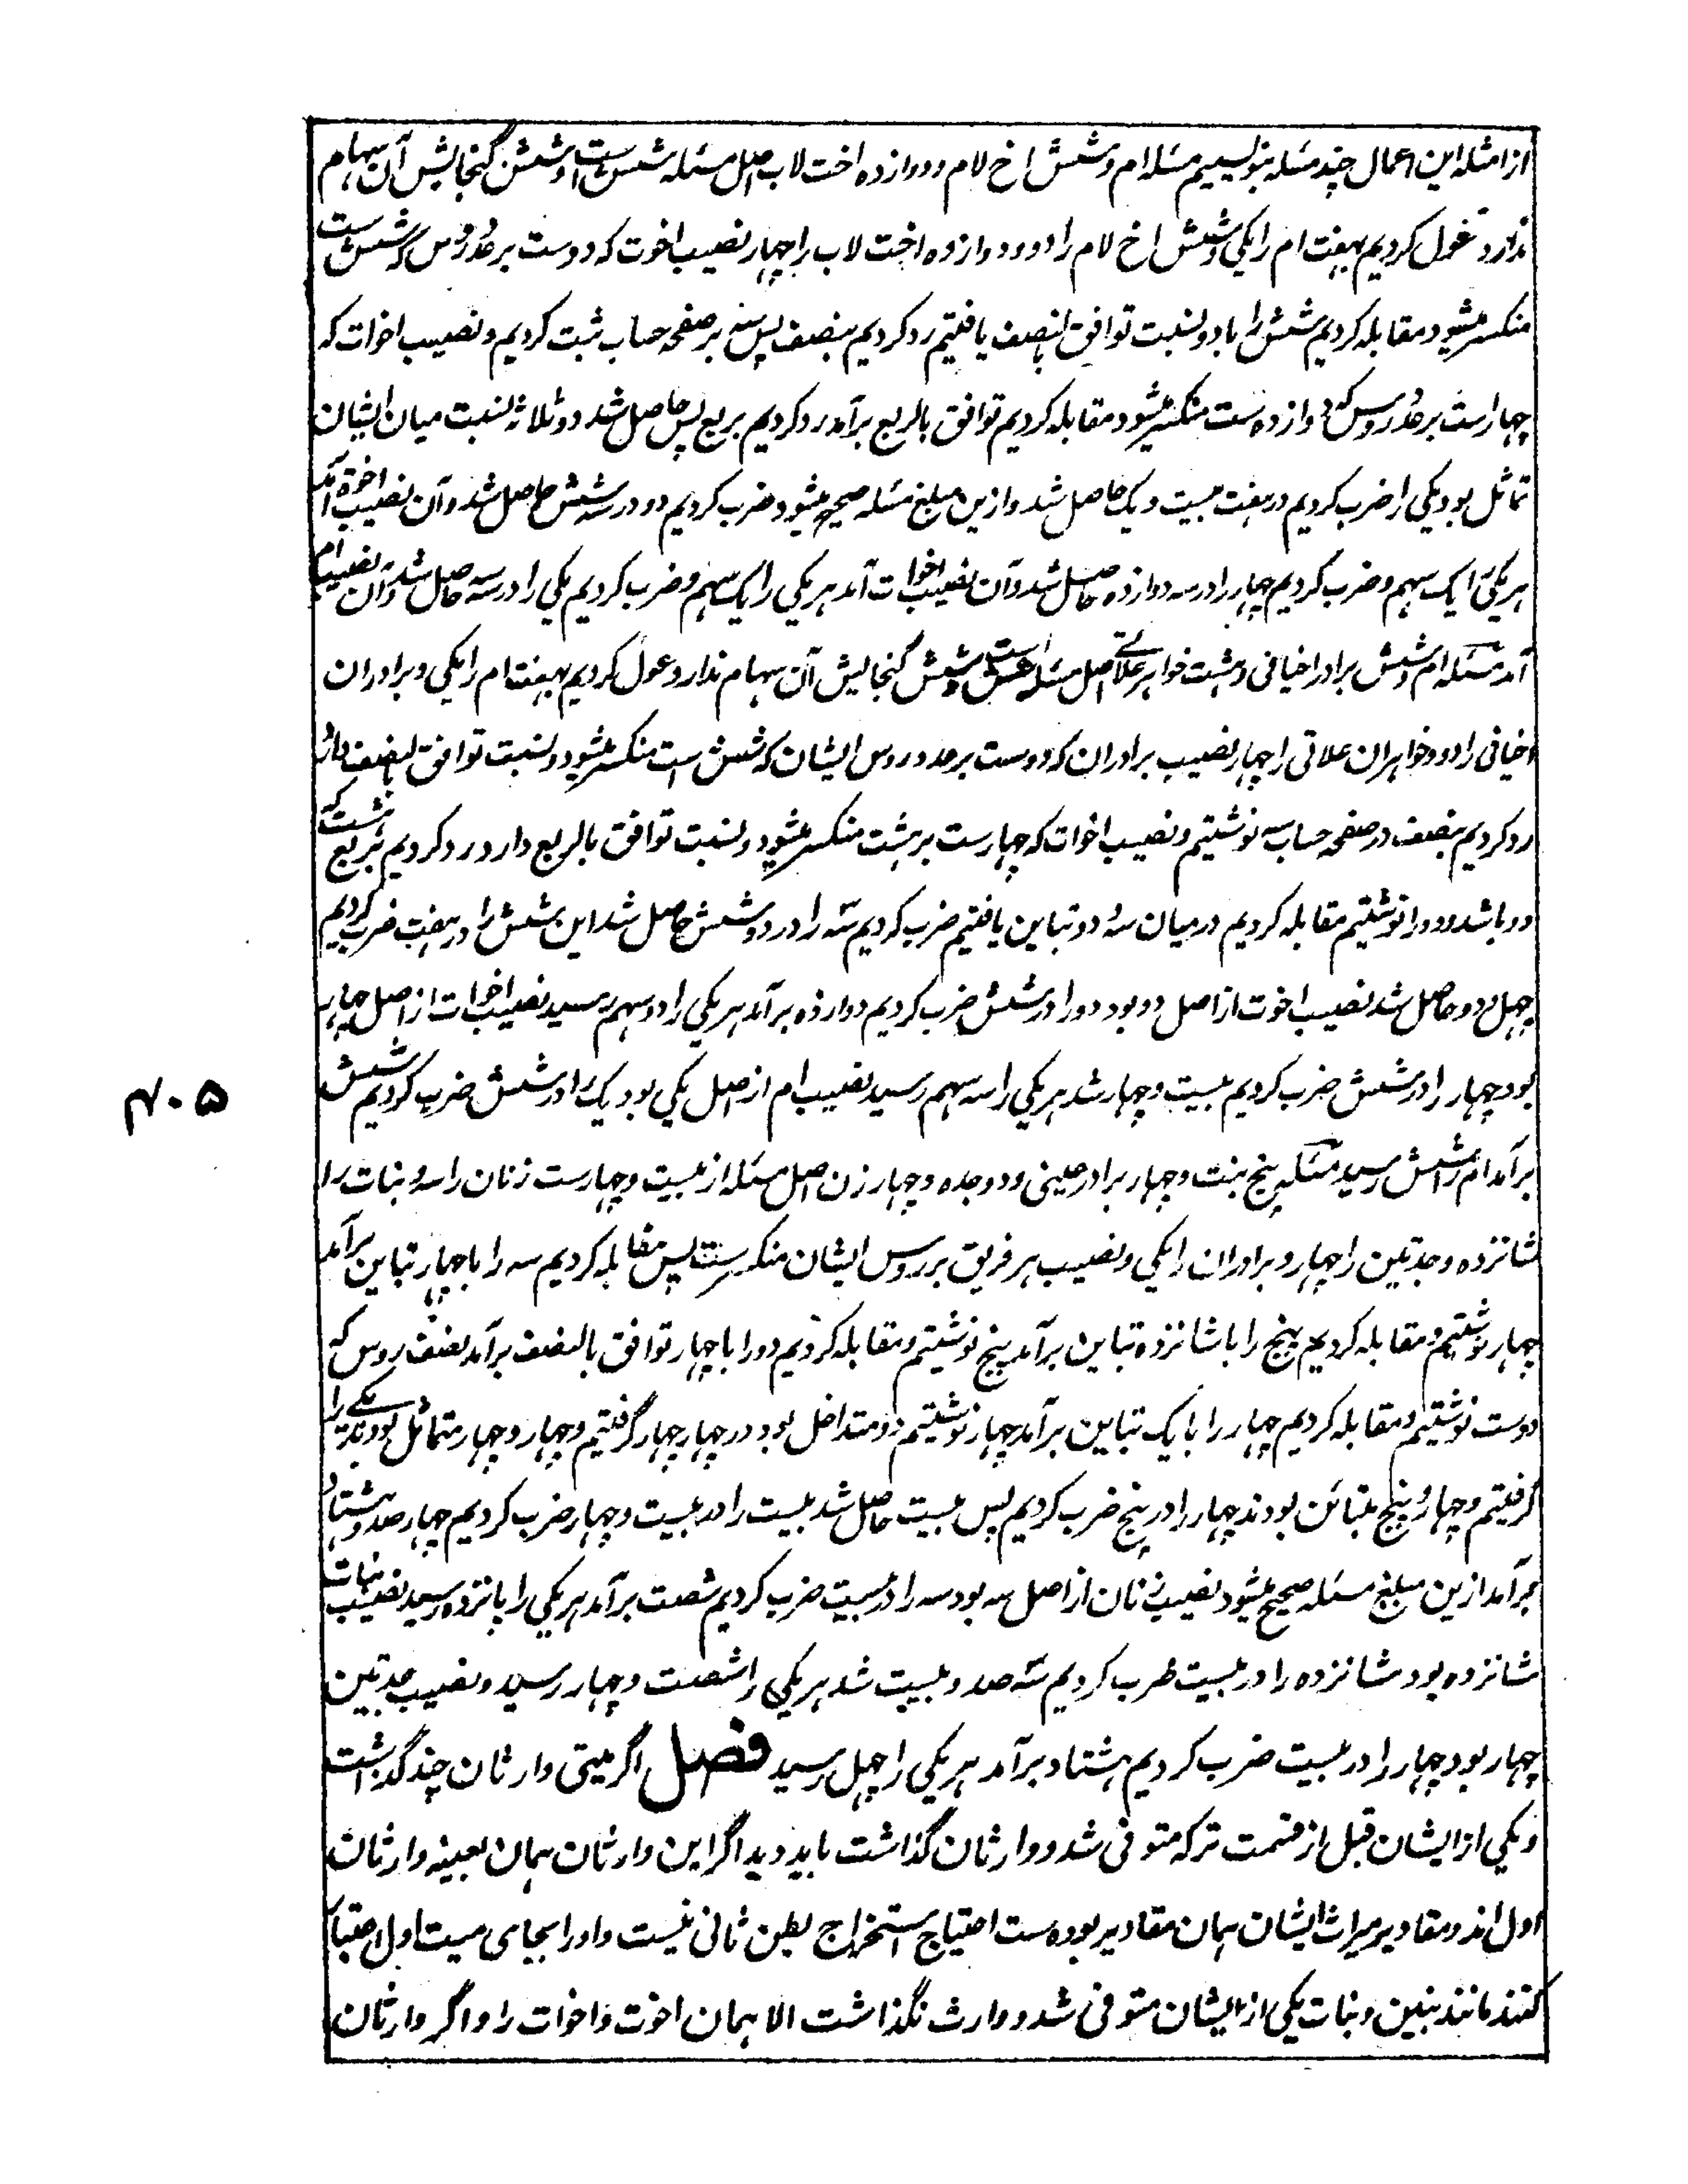 از امثله این اعمال چند مسئله بنویسیم مسئله ام و شش اخ لام و دوازده اخت لاب اصل مسئله شش ست و شش گنجایش آن سهام
ندارد عول کردیم بهفت ام را یکی و شش اخ لام را دو و دوازده اخت لاب را چهار نصیب اخوت که دوست بر عدد روس که شش ست
منکسر میشود مقابله کردیم شش را با دو نسبت توافق بالنصف یافتیم رد کردیم بنصف پس سه بر صفحه حساب ثبت کردیم و نصیب اخوات که
چهارست بر عدد روس که دوازده ست منکسر میشود مقابله کردیم توافق بالربع برآمد رد کردیم بربع پس حاصل شد دو ثلاثه نسبت میان ایشان
تماثل بود یکی را ضرب کردیم در هفت بیست و یک حاصل شد و ازین مبلغ مسئله صحیح میشود ضرب کردیم دو در سه شش حاصل شد و آن نصیب اخوة آمد
هر یکی را یک سهم و ضرب کردیم چهار را در سه دوازده حاصل شد و آن نصیب اخوات آمد هر یکی را یک سهم و ضرب کردیم یکی را در سه سه حاصل شد و آن نصیب ام
آمد مسئله ام و شش برادر اخیافی و هشت خواهر علاتی اصل مسئله شش است و شش گنجایش آن سهام ندارد عول کردیم بهفت ام را یکی و برادران
اخیافی را دو و خواهران علاتی را چهار نصیب برادران که دوست بر عدد روس ایشان که شش است منکسر میشود و نسبت توافق بالنصف دارد
رد کردیم بنصف در صفحه حساب سه نوشتیم و نصیب اخوات که چهارست بر هشت منکسر میشود و نسبت توافق بالربع دارد رد کردیم بربع هشت که
دو باشد و دو را نوشتیم مقابله کردیم در میان سه و دو تباین یافتیم ضرب کردیم سه را در دو شش حاصل شد این شش را در هفت ضرب کردیم
چهل و دو حاصل شد نصیب اخوت از اصل دو بود دو را در شش ضرب کردیم دوازده برآمد هر یکی را دو سهم رسید نصیب اخوات از اصل چهار
بود چهار را در شش ضرب کردیم بیست و چهار شد هر یکی را سه سهم رسید نصیب ام از اصل یکی بود یک را در شش ضرب کردیم شش
برآمد ام را شش رسید مسئله پنج بنت و چهار برادر عینی و دو جده و چهار زن اصل مسئله از بیست و چهارست زنان را سه و بنات را
شانزده و جدتین را چهار و برادران را یکی و نصیب هر فریق بر روس ایشان منکسرست پس مقابله کردیم سه را با چهار تباین برآمد
چهار نوشتیم و مقابله کردیم پنج را با شانزده تباین برآمد پنج نوشتیم و مقابله کردیم دو را با چهار توافق بالنصف برآمد نصف روس که
دوست نوشتیم و مقابله کردیم چهار را با یک تباین برآمد چهار نوشتیم دو متداخل بود در چهار چهار گرفتیم و چهار و چهار متماثل بودند یکی را
گرفتیم و چهار و پنج متبائن بودند چهار را در پنج ضرب کردیم پس بیست حاصل شد بیست را در بیست و چهار ضرب کردیم چهار صد و هشتاد
برآمد ازین مبلغ مسئله صحیح میشود نصیب زنان از اصل سه بود سه را در بیست ضرب کردیم شصت برآمد هر یکی را پانزده رسید نصیب بنات
شانزده بود شانزده را در بیست ضرب کردیم سه صد و بیست شد هر یکی را شصت و چهار رسید و نصیب جدتین
چهار بود چهار را در بیست ضرب کردیم هشتاد برآمد هر یکی را چهل رسید فصل اگر میتی وارثان چند گذاشت
و یکی از ایشان قبل از قسمت ترکه متوفی شد و وارثان گذاشت باید دید اگر این وارثان همان بعینه وارثان
اول اند و مقادیر میراث ایشان همان مقادیر بوده ست احتیاج استخراج بطن ثانی نیست و او را بجای میت اول اعتبار
کنند مانند بنین و بنات یکی از ایشان متوفی شد و وارث نگذاشت الا همان اخوت و اخوات را و اگر وارثان
۴۰۵